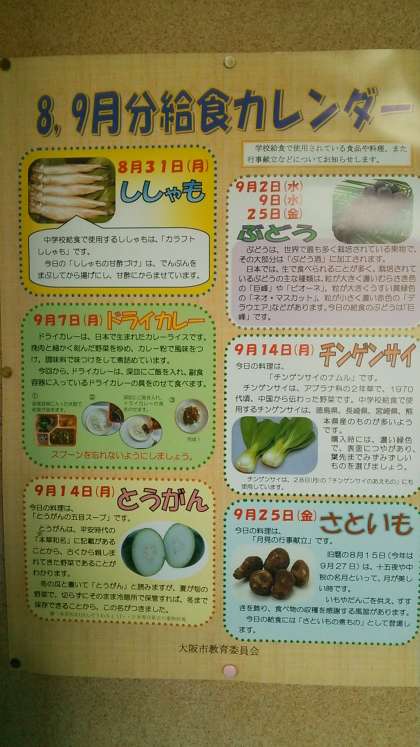 8,9月分給食カレンダー
学校給食で使用されている食品や料理、また
行事献立などについてお知らせします。
8月31日(月)
ししゃも
中学校給食で使用するししゃもは、「カラフト
ししゃも」です。
今日の「ししゃもの甘酢づけ」は、でんぷんを
まぶしてから揚げにし、甘酢にからませています。
9月2日(水)
9日(水)
25日(金)
ぶどう
ぶどうは、世界で最も多く栽培されている果物で、
その大部分は「ぶどう酒」に加工されます。
日本では、生で食べられることが多く、栽培されて
いるぶどうの主な種類は、粒が大きく濃いむらさき色
の「巨峰」や「ピオーネ」、粒が大きくうすい黄緑色
の「ネオ・マスカット」、粒が小さく濃い赤色の「デ
ラウエア」などがあります。今日の給食のぶどうは「巨
峰」です。
9月7日(月)
ドライカレー
ドライカレーは、日本で生まれたカレーライスです。
挽肉と細かく刻んだ野菜をゆめ、カレー粉で風味をつ
け、調味料で味つけをして煮詰めています。
今回から、ドライカレーは、深皿にご飯を入れ、副食
容器に入っているドライカレーの具をのせて食べます。
①
②
③
スプーンを忘れないようにしましょう。
9月14日(月)
チンゲンサイ
今日の料理は、
「チンゲンサイのナムル」です。
チンゲンサイは、アブラナ科の2年草で、1970
年代頃、中国から伝わった野菜です。中学校給食で使
用するチンゲンサイは、徳島県、長崎県、宮崎県、熊
本県産のものが多いよう
です。
購入時には、濃い緑色
で、表面につやがあり、
葉先までみずみずしい
ものを選びましょう。
チンゲンサイは、28日(月)の「チンゲンサイのあえもの」にも
9月14日(月)
とうがん
今日の料理は、
「とうがんの五目スープ」です。
とうがんは、平安時代の
「本草和名」に記載がある
ことから、古くから親しま
れてきた野菜であることが
わかります。
冬の瓜と書いて「とうがん」と読みますが、夏が旬の
野菜で、切らずにそのまま冷暗所で保管すれば、冬まで
保存できることから、この名がつきました。
9月25日(金)
さといも
今日の料理は、
「月見の行事献立」です。
旧暦の8月15日(今年は
9月27日)は、十五夜や中
秋の名月といって、月が美し
い時です。
いもやだんごを供え、すす
きを飾り、食べ物の収穫を感謝する風習があります。
今日の給食には「さといもの煮もの」として登場し
ます。
大阪市教育委員会